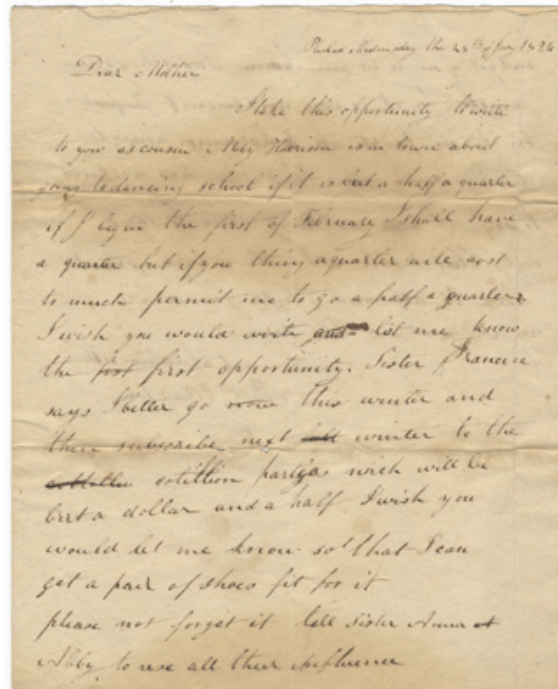 Wednesday the 25th of Jany 1826
Dear Mother
I take this opportunity to write
to you as cousin Abby Harrison is in town about
going to dancing school if it is but a half a quarter
if I begin the first of February I shall have
a quarter but if you thing a quarter will cost
to much permit me to go a half a quarter
I wish you would write and let me know
the fist first opportunity. Sister Francis
says I better go now this winter and
then subscribe next winter to the
cotillion parties wich will be
but a dollar and a half I wish you
would let me know so that I can
get a pair of shoes fit for it
please not forget it tell sister Anna et
Abby to use all their influence